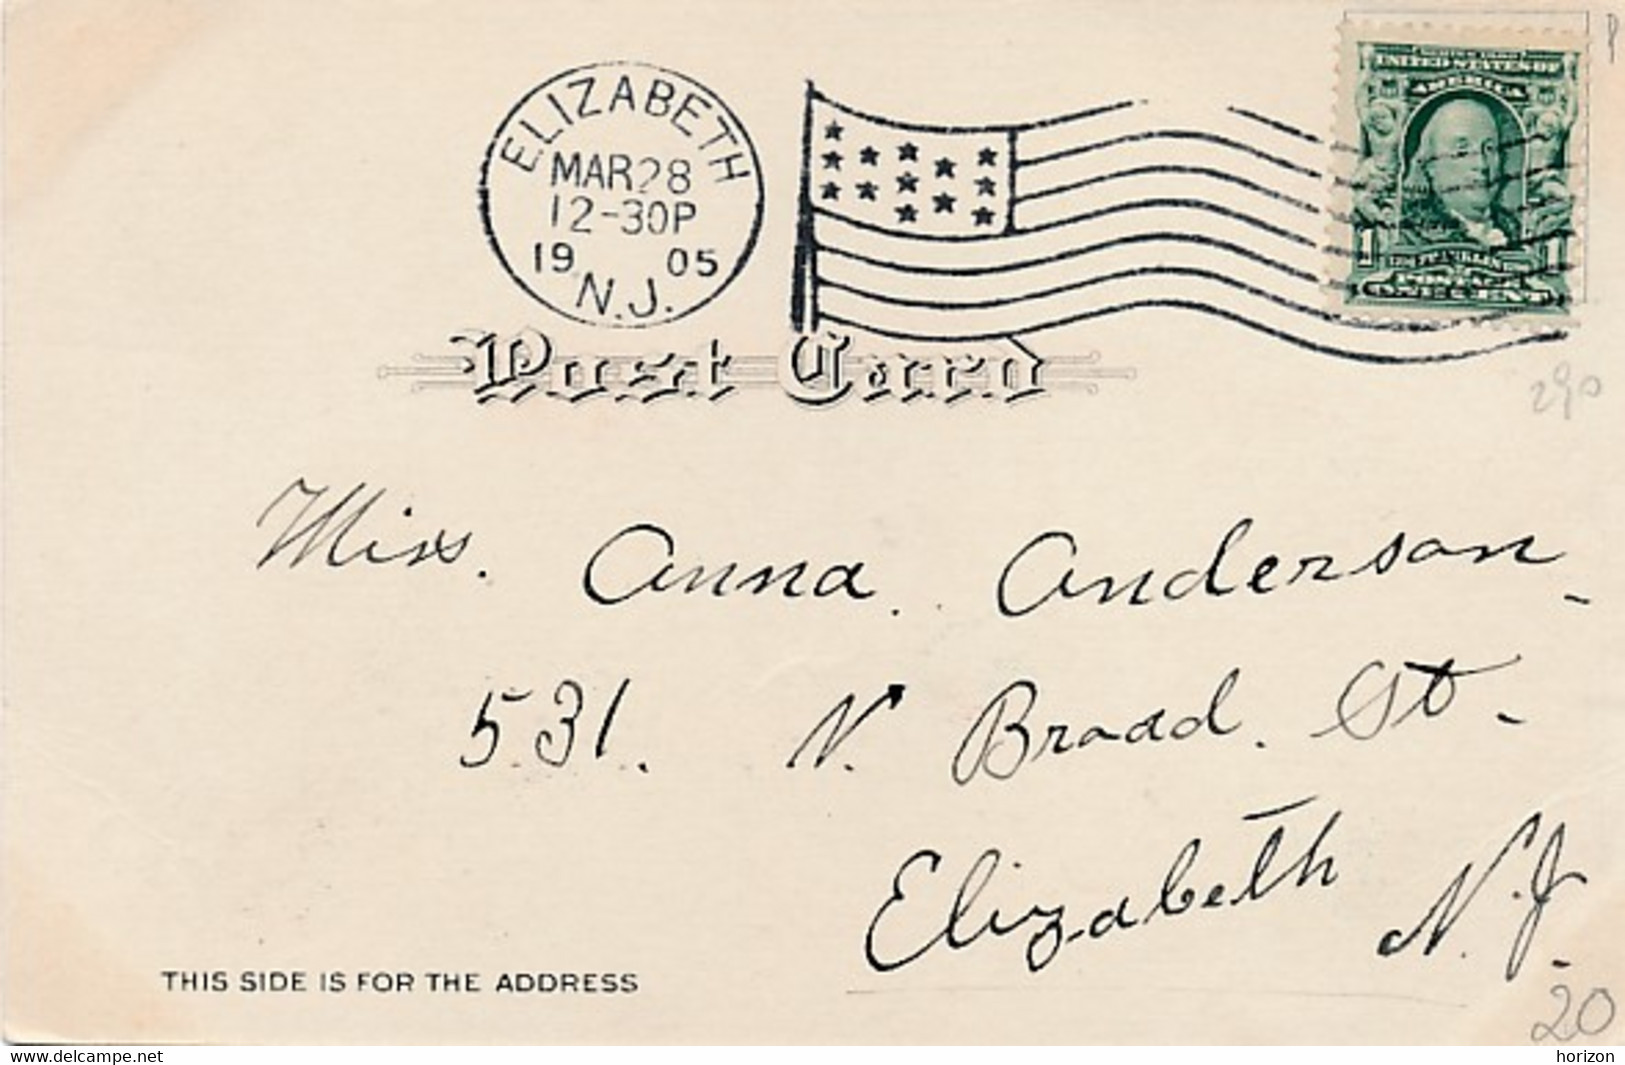 ELIZABETH
MAR 28
12-30P
1905
N.J.
UNITED STATES OF
AMERICA
1 1
ONE CENT
Post Card
290
Miss. Anna. Anderson.
531. N. Broad. St.
Elizabeth N.J.
THIS SIDE IS FOR THE ADDRESS
20
www.delcampe.net
horizon